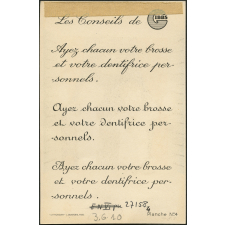 Les Conseils de
Ayez chacun votre brosse
et votre dentifrice per-
sonnels.
Ayez chacun votre brosse
et votre dentifrice per-
sonnels.
Ayez chacun votre brosse
et votre dentifrice per-
sonnels.
27158
3.G 10
Planche Nº4